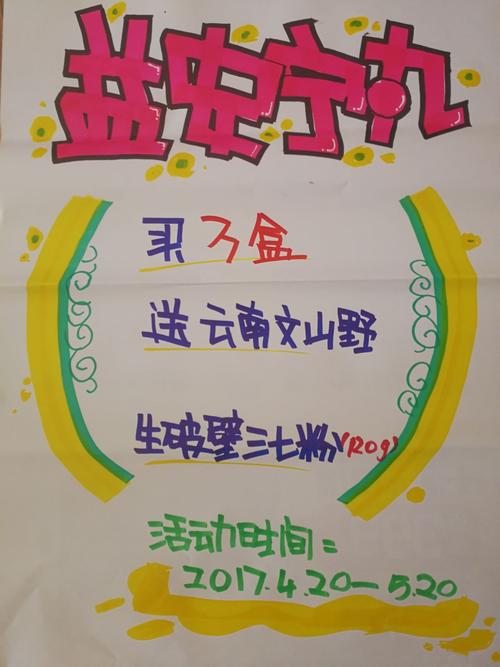 益安宁丸
买 盒
送云南文山野
生破壁三七粉(120g)
活动时间:
2017.4.20—5.20